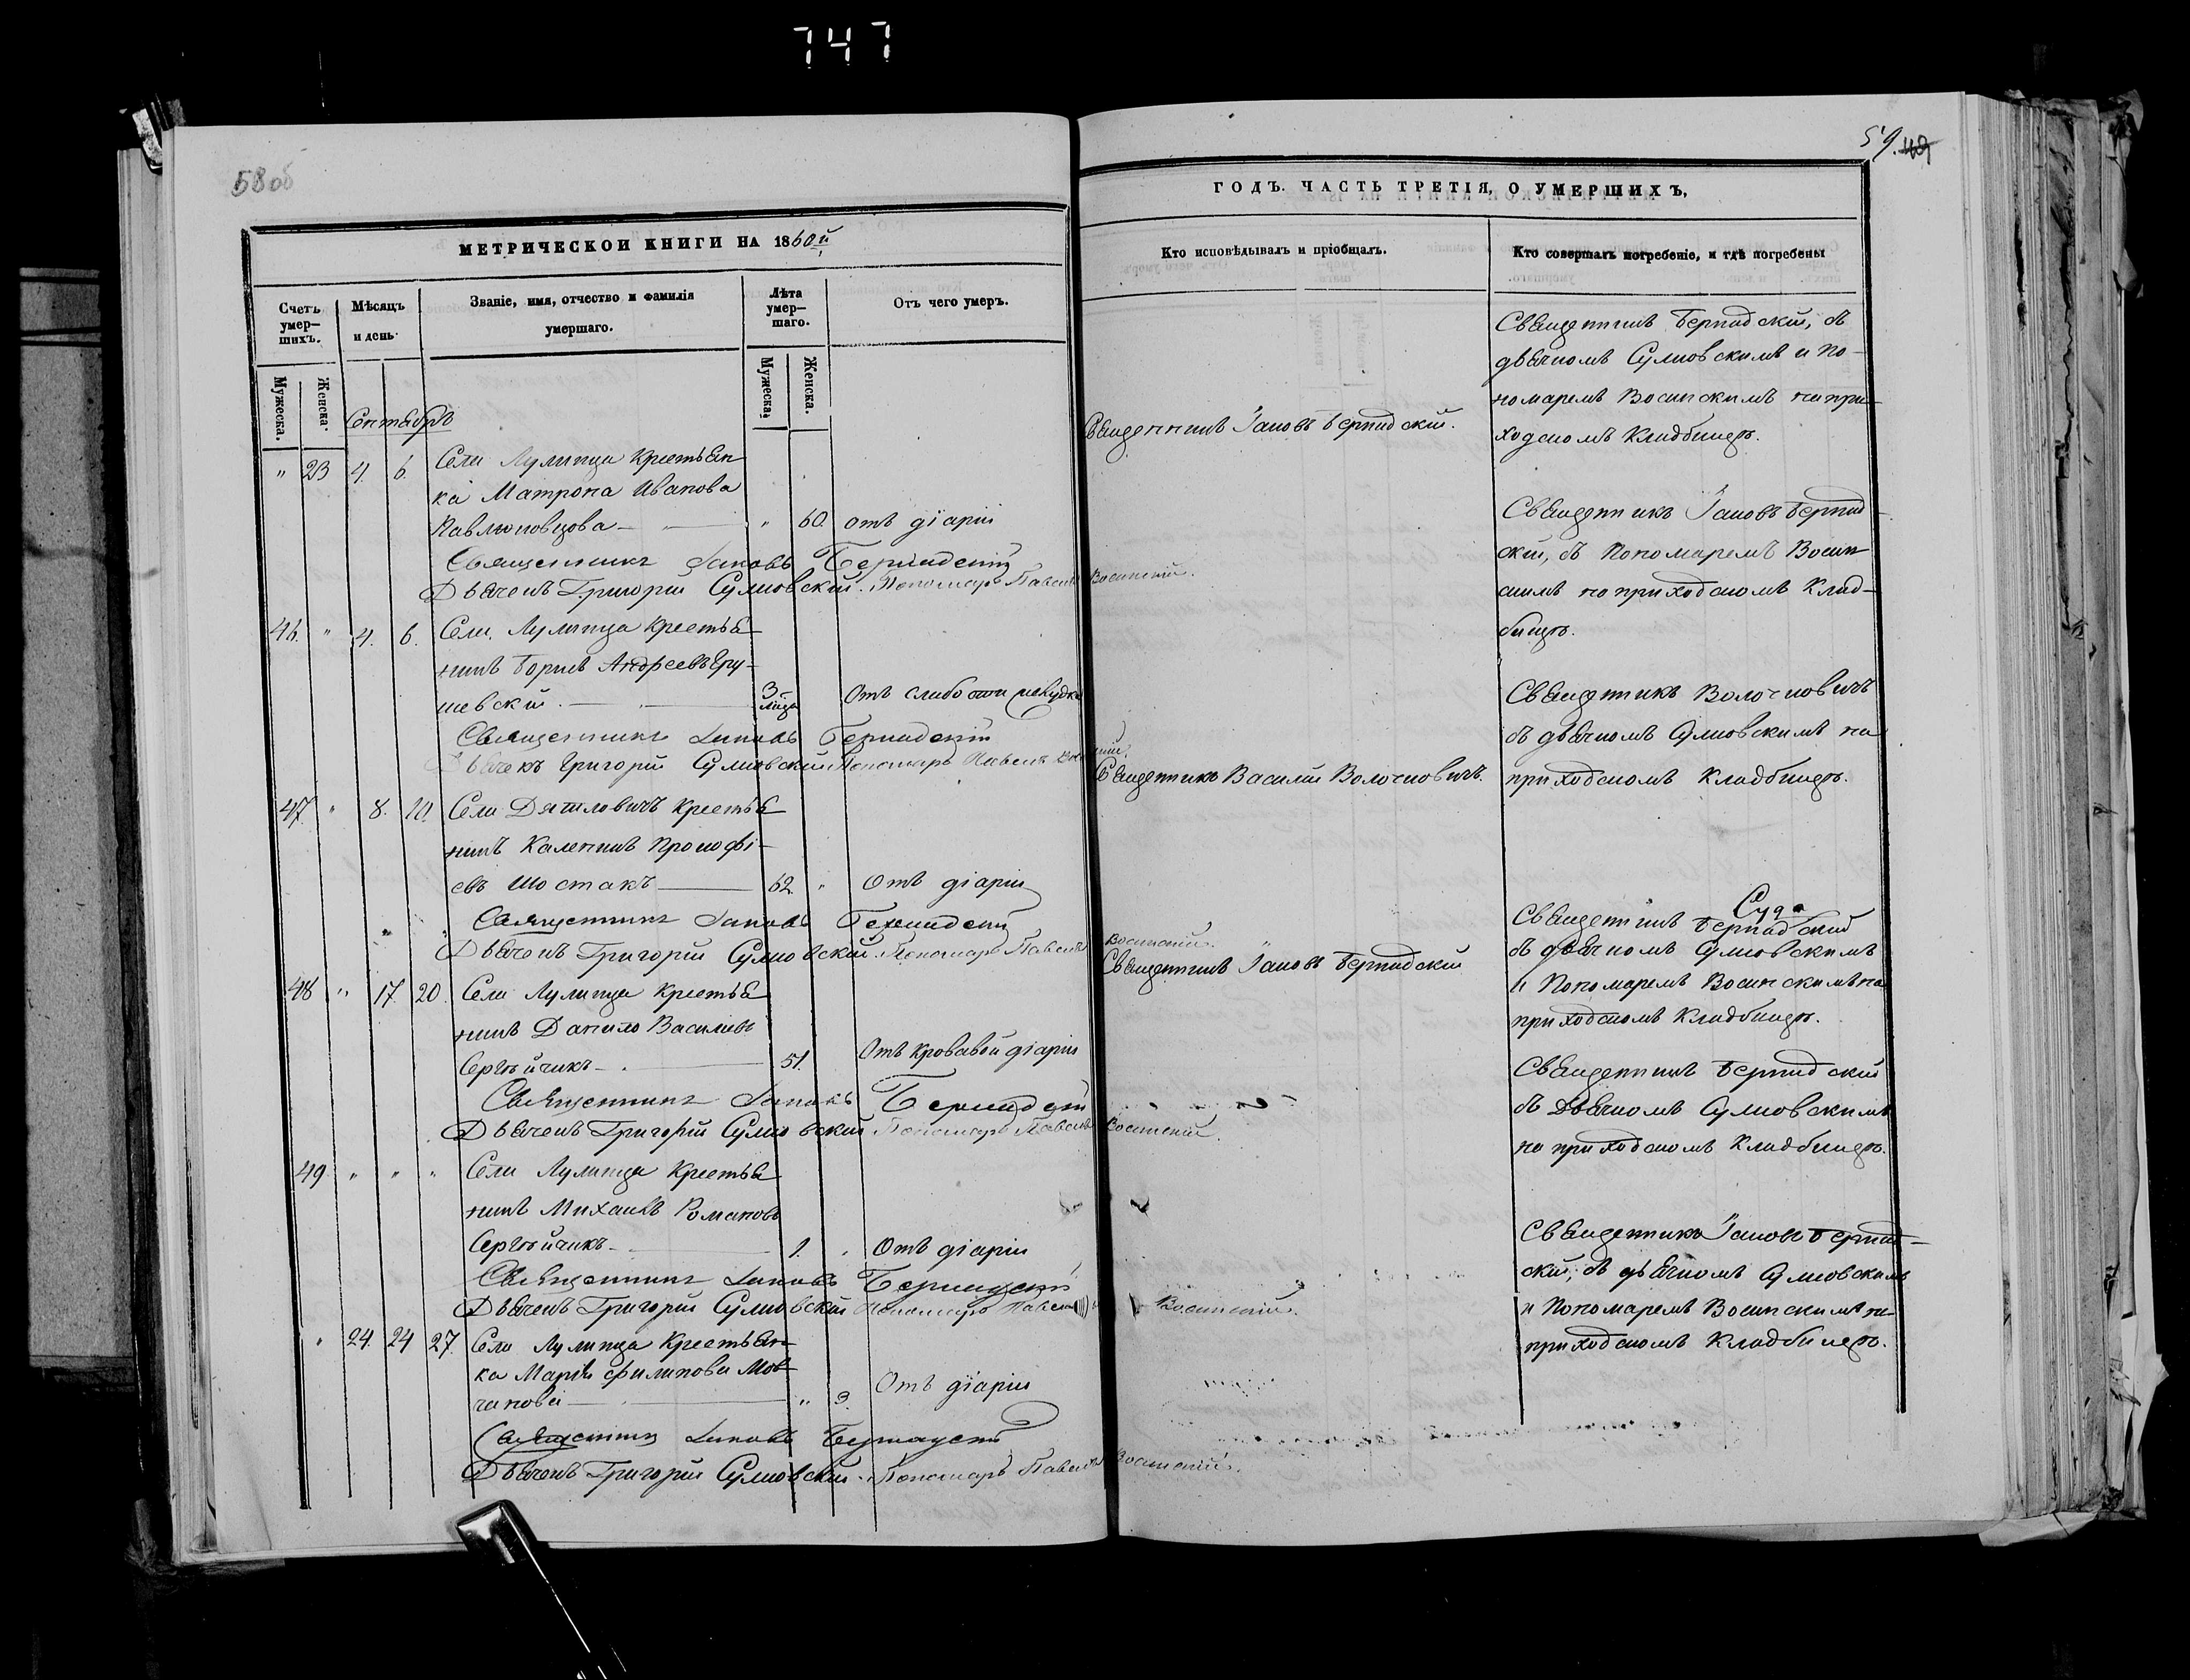 747
58 об
МЕТРИЧЕСКОЙ КНИГИ НА 1860й
Счетъ умер-шихъ.
Мѣсяцъ и день.
Званіе, имя, отчество и фамилія умершаго.
Лѣта умер-шаго.
Отъ чего умеръ.
Мужеска.
Женска.
Мужеска.
Женска.
Сентябрь
" 23 4. 6. Села Лулинца крестьян
ка Матрона Иванова
Павлюковцова " 60. отъ діаріи
Священникъ Іаковъ
Дьячекъ Григорій Сулковскій. Пономарь Павелъ
46. " 4. 6. Села Лулинца крестья
нинъ Борисъ Андреевъ
3 м-ца
Отъ слабости
Священникъ Іаковъ
Дьячекъ Григорій Сулковскій Пономарь Павелъ
47. " 8. 10. Села Дятловичъ крестья
нинъ Каленикъ Прокофі
евъ Шостакъ 62. " Отъ діаріи
Священникъ Іаковъ
Дьячекъ Григорій Сулковскій. Пономарь Павелъ
48 " 17. 20. Села Лулинца крестья
нинъ Данило Василіевъ
Сергѣйчикъ 51. Отъ кровавой діаріи
Священникъ Іаковъ
Дьячекъ Григорій Сулковскій Пономарь Павелъ
49. " " " Села Лулинца крестья
нинъ Михаилъ Романовъ
Сергѣйчикъ 1. " Отъ діаріи
Священникъ Іаковъ
Дьячекъ Григорій Сулковскій Пономарь Павелъ
" 24. 24 27. Села Лулинца крестьян
ка Марія Филипова Мов
чанова " 3. Отъ діаріи
Священникъ Іаковъ
Дьячекъ Григорій Сулковскій. Пономарь Павелъ
59. 49
ГОДЪ. ЧАСТЬ ТРЕТІЯ, О УМЕРШИХЪ,
Кто исповѣдывалъ и пріобщалъ.
Кто совершалъ погребеніе, и гдѣ погребены
Священникъ Іаковъ Бернадскій.
Священникъ Бернадскій, съ
дьячкомъ Сулковскимъ и по-
номаремъ Восинскимъ на при-
ходскомъ кладбищѣ.
Священникъ Іаковъ Бернад-
скій, съ Пономаремъ Восин
скимъ на приходскомъ клад-
бищѣ.
Восинскій.
Священникъ Василій Волочковичъ.
Священникъ Волочковичъ
съ дьячкомъ Сулковскимъ на
приходскомъ кладбищѣ.
Восинскій.
Священникъ Іаковъ Бернадскій
Священникъ Бернадскій
съ дьячкомъ Сулковскимъ
и Пономаремъ Восинскимъ на
приходскомъ кладбищѣ.
Священникъ Бернадскій
съ Дьячкомъ Сулковскимъ
на приходскомъ кладбищѣ.
Восинскій.
Священникъ Іаковъ Бернад-
скій, съ дьячкомъ Сулковскимъ
и Пономаремъ Восинскимъ на
приходскомъ кладбищѣ.
Восинскій.
Восинскій.